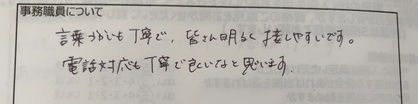 事務職員について
言葉づかいも丁寧で、皆さん明るく接しやすいです。
電話対応も丁寧で良いなと思います。